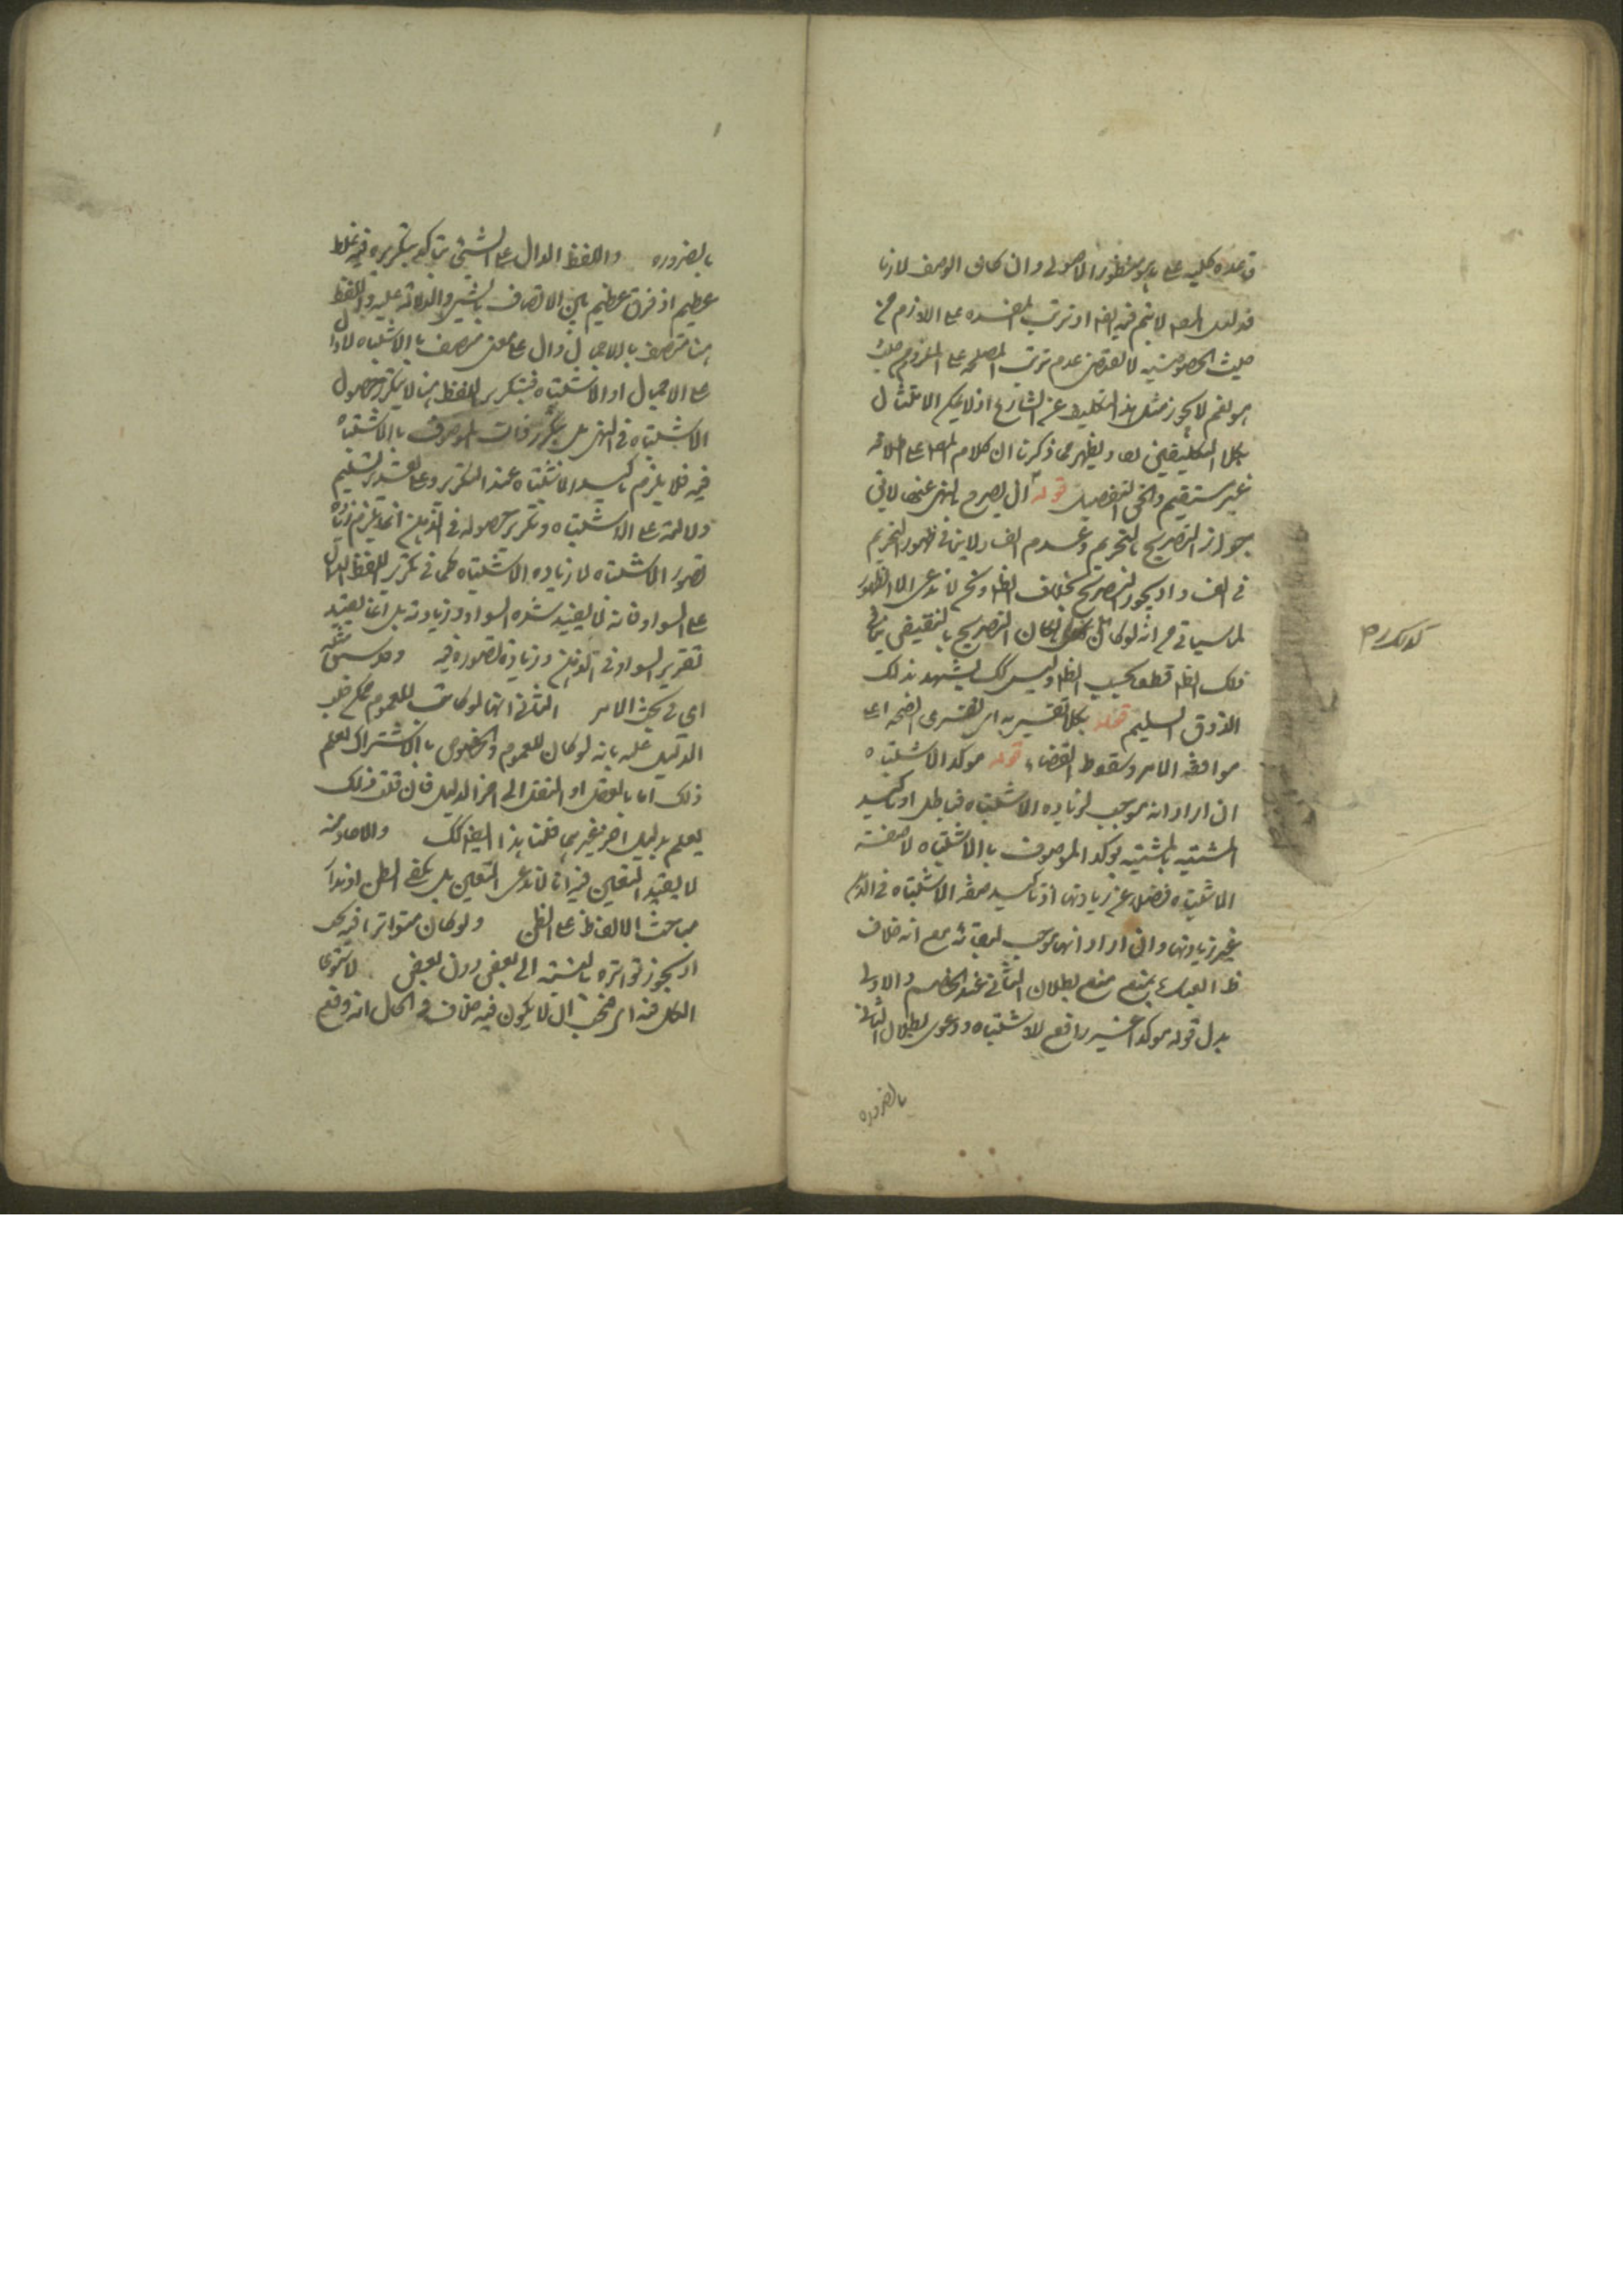 قاعده كليه على ما هو منظور الاصولى وان كان الوصف لازما
فدليل المص لا يتم فيه ايضا اذ ترتب المفسده على اللازم من
حيث الخصوصيه لا يقتضى عدم ترتب المصلحه على الملزوم من حيث
هو نعم لا يجوز مثل هذا التكليف عن الشارع اذ لا يمكن الامتثال
بكلا التكليفين معا ويظهر مما ذكرنا ان كلام المص على اطلاقه
غير مستقيم والحق التفصيل قوله ان يصرح بالنهى عنها لا فى
جواز التصريح بالتحريم وعدم الفساد لا ينافى ظهور التحريم
فى الفساد اذ يجوز التصريح بخلاف الظاهر ونحن لا ندعى الا الظهور
لما سياتى مع انه لو كان لكان التصريح بالنقيض ينافى
ذلك الظاهر قطعا بحسب الظاهر وليس كك يشهد بذلك
الذوق السليم قوله بكلا تفسيريه اى تفسيرى الصحه اعنى
موافقه الامر وسقوط القضاء قوله موكد الاشتباه
ان اراد انه موجب لزياده الاشتباه فباطل اذ تاكيد
المشتبه بالمشتبه يوكد الموصوف بالاشتباه لا صفة
الاشتباه فضلا عن زيادتها اذ تاكيد صفه الاشتباه فى الذهن
غير زيادتها وان اراد انها موجب لبقائه مع انه خلاف
ظ العبارة يمنع منع بطلان الثانى عند الخصم والاولى
بدل قوله موكدا غير رافع للاشتباه ودعوى بطلان الثانى
بالضروره
بالضروره واللفظ الدال على الشئ يتاكد بتكريره فيه غلط
عظيم اذ فرق عظيم بين الاتصاف بالشئ والدلالة عليه واللفظ
هنا متصف بالاجمال ودال على معنى متصف بالاشتباه لا دال
على الاجمال او الاشتباه فبتكرير اللفظ هنا لا يتكرر حصول
الاشتباه فى الذهن بل يتكرر ذات الموصوف بالاشتباه
فيه فلا يلزم تاكيد الاشتباه عند التكرير وعلى تقدير تسليم
دلالته على الاشتباه وتكرير حصوله فى الذهن انما يلزم زياده
تصور الاشتباه لا زياده الاشتباه كما فى تكرير اللفظ الدال
على السواد فانه لا يفيد شده السواد وزيادته بل انما يفيد
تقرير السواد فى الذهن وزيادة تصوره فيه وقد سبق مثله
اى فى بحث الامر الثانى انها لو كانت للعموم
الدليل عليه بانه لو كان للعموم والخصوص بالاشتراك لعلم
ذلك اما بالعقل او النقل الى اخر الدليل فان قلت ذلك
يعلم بدليل اخر غيرهما قلنا هذا ايضا كك والاحاد منه
لا يفيد اليقين فيه انا لا ندعى اليقين بل يكفى الظن اذ مدار
مباحث الالفاظ على الظن ولو كان متواترا فيه بحث
اذ يجوز تواتره بالنسبة الى بعض دون بعض لاستوى
الكل فيه اى فيجب ان لا يكون فيه خلاف والحال انه وقع